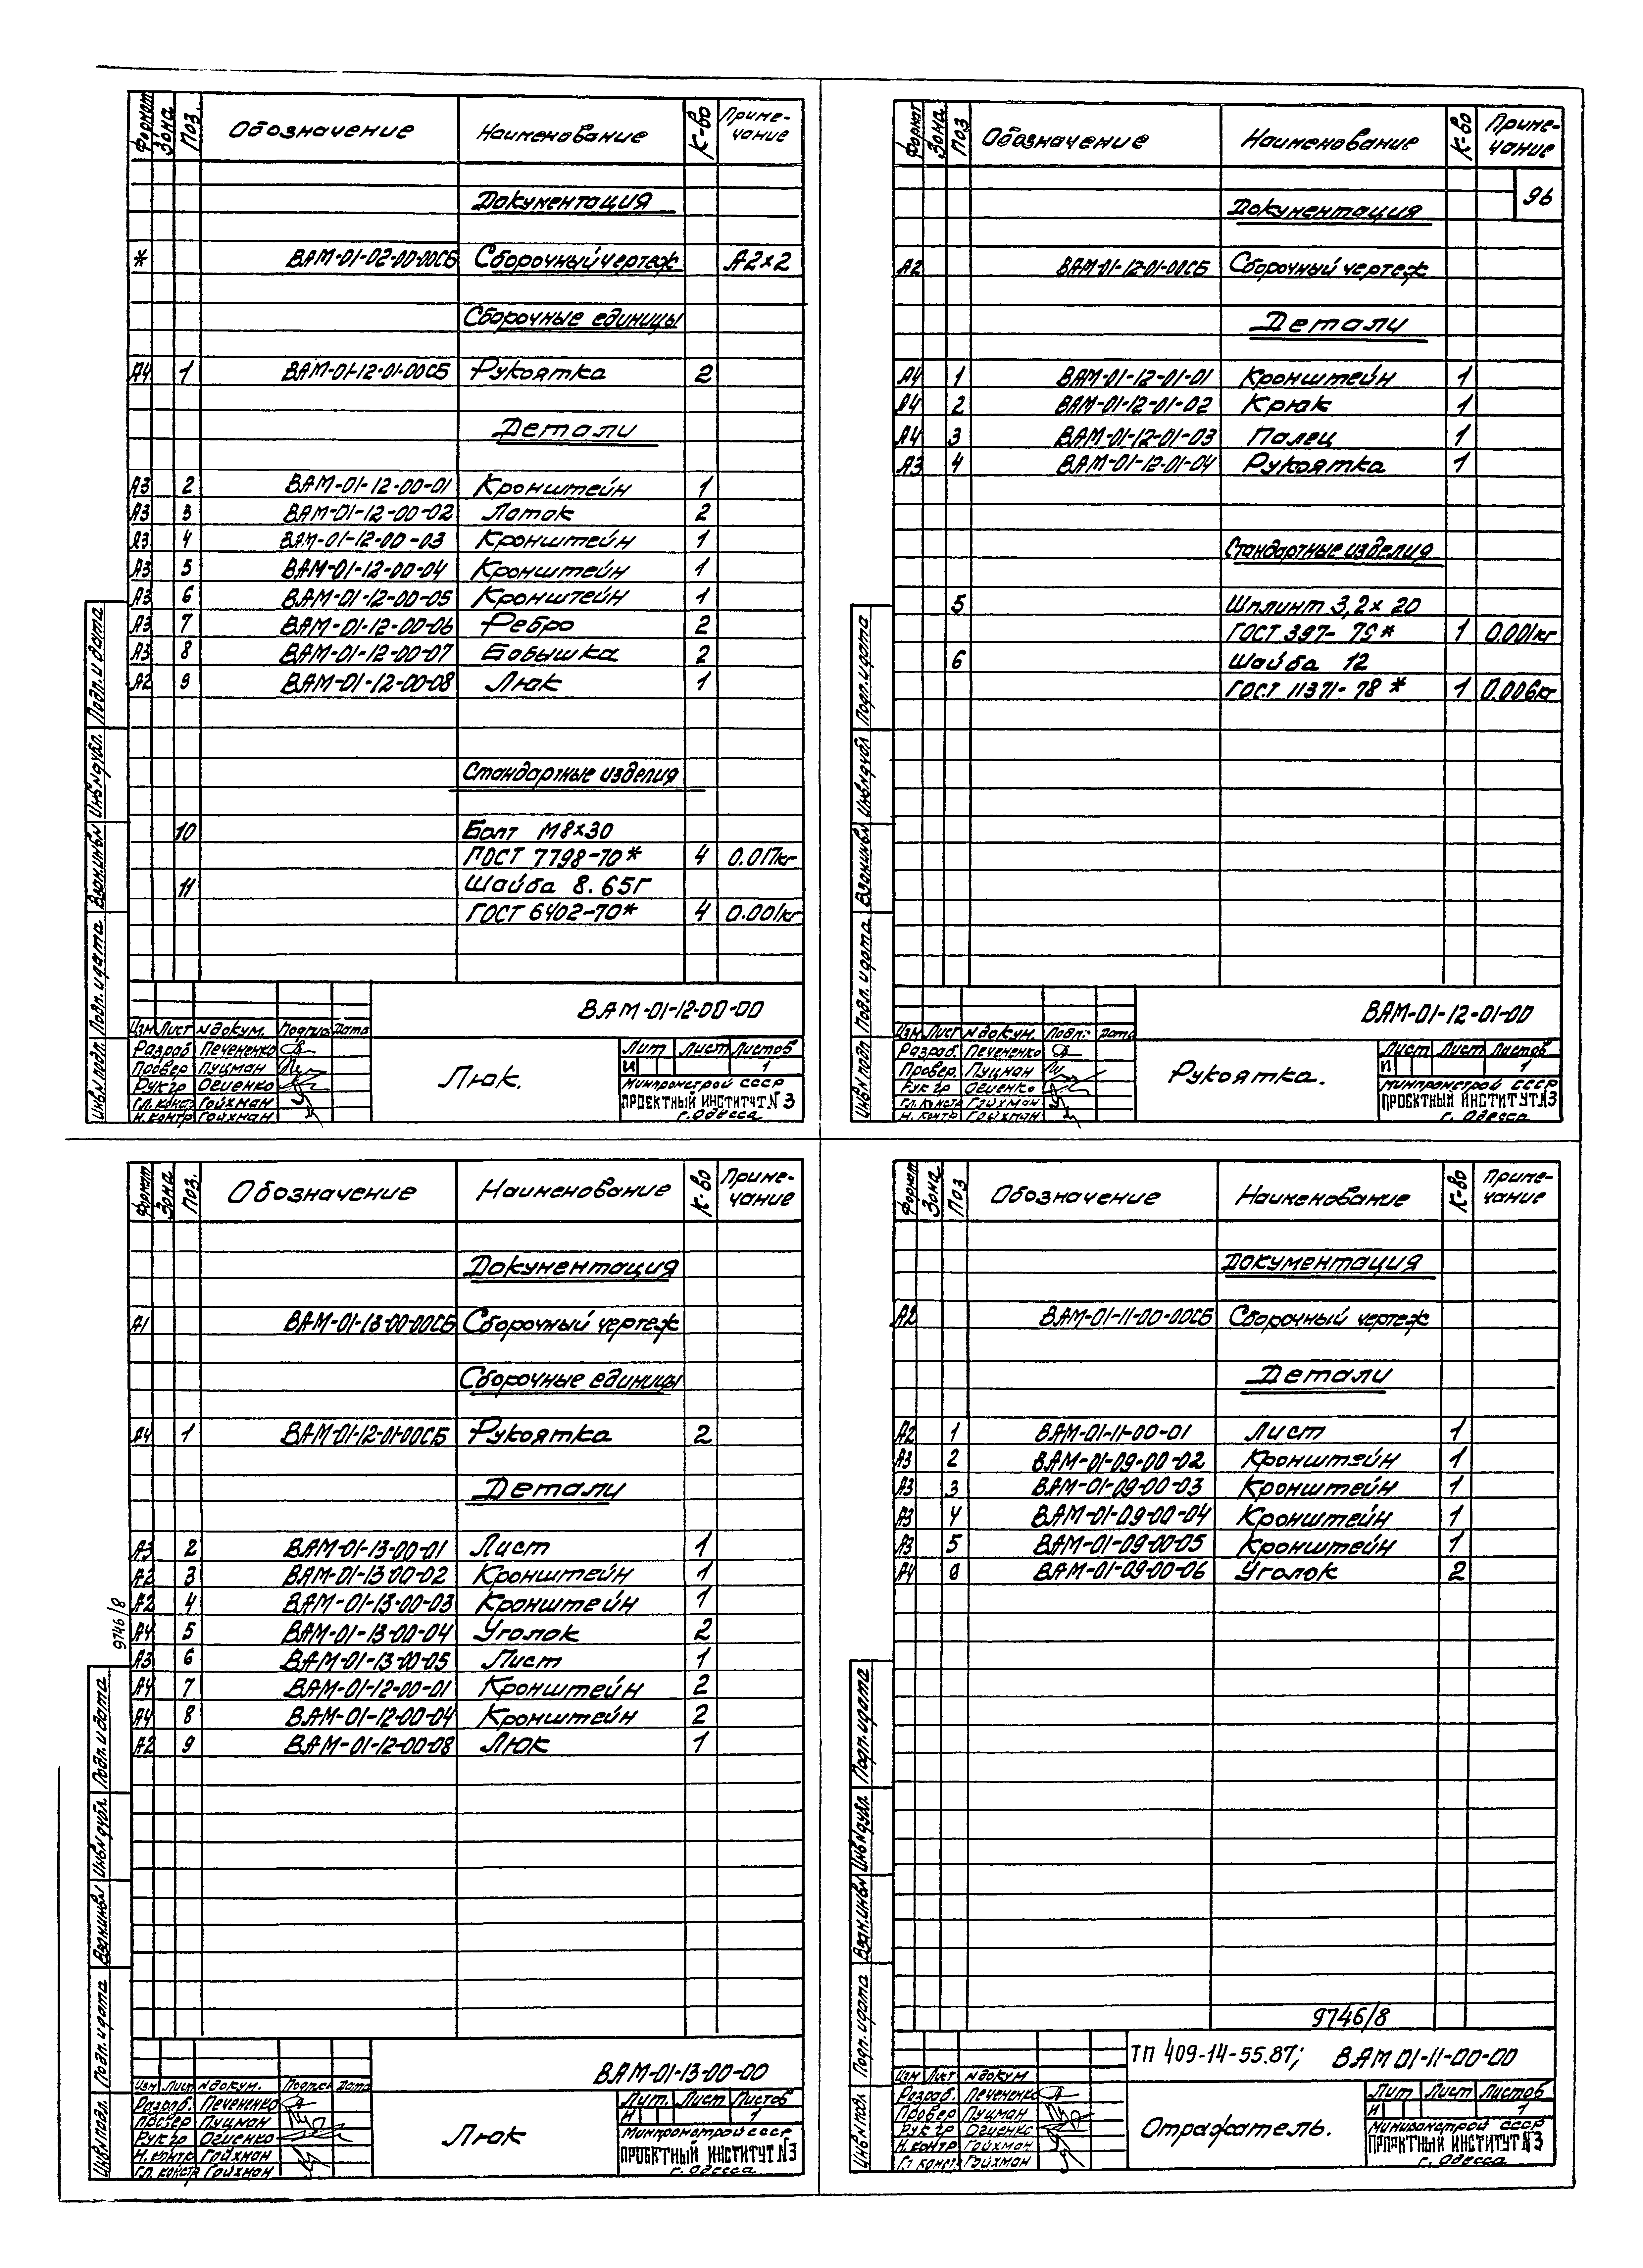 Формат Зона Поз. Обозначение Наименование К-во Приме-
чание
Документация
* ВАМ-01-02-00-00СБ Сборочный чертеж А2х2
Сборочные единицы
А4 1 ВАМ-01-12-01-00СБ Рукоятка 2
Детали
А3 2 ВАМ-01-12-00-01 Кронштейн 1
А3 3 ВАМ-01-12-00-02 Лоток 2
А3 4 ВАМ-01-12-00-03 Кронштейн 1
А3 5 ВАМ-01-12-00-04 Кронштейн 1
А3 6 ВАМ-01-12-00-05 Кронштейн 1
А3 7 ВАМ-01-12-00-06 Ребро 2
А3 8 ВАМ-01-12-00-07 Бобышка 2
А2 9 ВАМ-01-12-00-08 Люк 1
Стандартные изделия
10 Болт М8х30
ГОСТ 7798-70* 4 0.017кг
11 Шайба 8.65Г
ГОСТ 6402-70* 4 0.001кг
Подп. и дата
Инв.№дубл.
Взам.инв№
Подп. и дата
Инв№ подл.
ВАМ-01-12-00-00
Изм Лист №докум. Подпись Дата
Разраб. Печененко
Провер Пуцман
Рук гр Огиенко
Гл. конст Гойхман
Н. контр Гойхман
Люк.
Лит Лист Листов
И 1
Минпромстрой СССР
ПРОЕКТНЫЙ ИНСТИТУТ №3
г. Одесса
Формат Зона Поз Обозначение Наименование К-во Приме-
чание
96
Документация
А2 ВАМ-01-12-01-00СБ Сборочный чертеж
Детали
А4 1 ВАМ-01-12-01-01 Кронштейн 1
А4 2 ВАМ-01-12-01-02 Крюк 1
А4 3 ВАМ-01-12-01-03 Палец 1
А3 4 ВАМ-01-12-01-04 Рукоятка 1
Стандартные изделия
5 Шплинт 3,2х 20
ГОСТ 397-79* 1 0.001кг
6 Шайба 12
ГОСТ 11371-78* 1 0.006кг
Подп. и дата
Инв№дубл
Взам.инв№
Подп. и дата
Инв№ подл
ВАМ-01-12-01-00
Изм Лист №докум. Подп. Дата
Разраб. Печененко
Провер Пуцман
Рук гр Огиенко
Гл. конст Гойхман
Н. контр Гойхман
Рукоятка.
Лист Лист Листов
И 1
Минпромстрой СССР
ПРОЕКТНЫЙ ИНСТИТУТ №3
г. Одесса
Формат Зона Поз. Обозначение Наименование К-во Приме-
чание
Документация
А1 ВАМ-01-13-00-00СБ Сборочный чертеж
Сборочные единицы
А4 1 ВАМ-01-12-01-00СБ Рукоятка 2
Детали
А3 2 ВАМ-01-13-00-01 Лист 1
А2 3 ВАМ-01-13-00-02 Кронштейн 1
А2 4 ВАМ-01-13-00-03 Кронштейн 1
А4 5 ВАМ-01-13-00-04 Уголок 2
А3 6 ВАМ-01-13-00-05 Лист 1
А4 7 ВАМ-01-12-00-01 Кронштейн 2
А4 8 ВАМ-01-12-00-04 Кронштейн 2
А2 9 ВАМ-01-12-00-08 Люк 1
9746/8
Подп. и дата
Инв№ дубл.
Взам.инв№
Подп. и дата
Инв№подл.
ВАМ-01-13-00-00
Изм Лист №докум. Подпись Дата
Разраб. Печененко
Провер Пуцман
Рук гр Огиенко
Н. контр Гойхман
Гл. конст Гойхман
Люк
Лит. Лист Листов
И 1
Минпромстрой СССР
ПРОЕКТНЫЙ ИНСТИТУТ №3
г. Одесса
Формат Зона Поз Обозначение Наименование К-во Приме-
чание
Документация
А2 ВАМ-01-11-00-00СБ Сборочный чертеж
Детали
А2 1 ВАМ-01-11-00-01 Лист 1
А3 2 ВАМ-01-09-00-02 Кронштейн 1
А3 3 ВАМ-01-09-00-03 Кронштейн 1
А3 4 ВАМ-01-09-00-04 Кронштейн 1
А3 5 ВАМ-01-09-00-05 Кронштейн 1
А4 6 ВАМ-01-09-00-06 Уголок 2
9746/8
Подп. и дата
Инв№дубл.
Взам.инв№
Подп. и дата
Инв№подл.
ТП 409-14-55.87; ВАМ 01-11-00-00
Изм Лист №докум
Разраб. Печененко
Провер Пуцман
Рук гр Огиенко
Н. контр Гойхман
Гл конст Гойхман
Отражатель.
Лит Лист Листов
И 1
Минпромстрой СССР
ПРОЕКТНЫЙ ИНСТИТУТ №3
г. Одесса